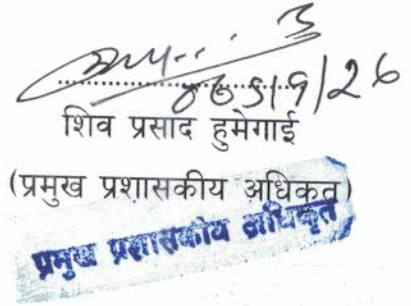 शिव प्रसाद हुमेगाई
(प्रमुख प्रशासकीय अधिकृत)
प्रमुख प्रशासकीय अधिकृत